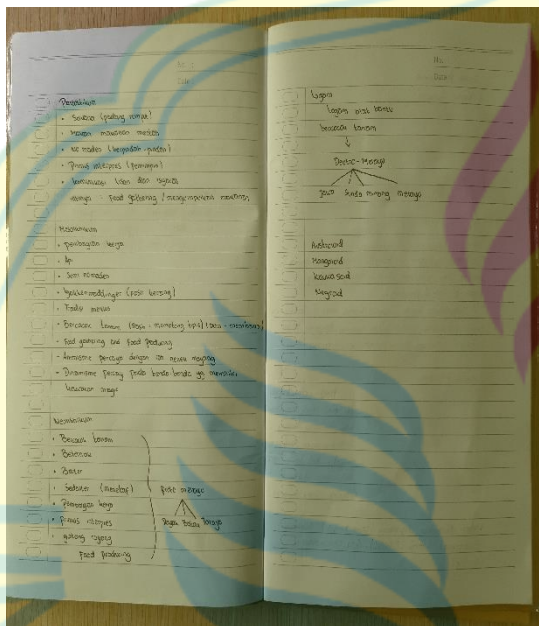 No.
Date
Paleolitikum
• Sourbai (padang rumput)
• Makan makanan mentah
• No maden (berpindah-pindah)
• Primus interpres (pemimpin)
food gathering / mengumpulkan makanan
Mesolitikum
• pembagian kerja
• Api
• Semi nomaden
• kjokkenmoddinger (fosil kerang)
• Bercocok tanam
• Food gathering and food producing
• Animisme percaya dengan roh nenek moyang
• Dinamisme pada benda-benda yg memiliki
kekuatan magis
Neolitikum
• Bercocok tanam
• Beternak
• Barter
• Sedenter (menetap)
• Pembagian kerja
• Primus interpres
• gotong royong
Food producing
proto melayu
Dayak Batak Toraja
No.
Date
Logam
Logam
bercocok tanam
Deutro-Melayu
Jawa Sunda minang melayu
Australoid
Mongoloid
Kaukasoid
Negroid